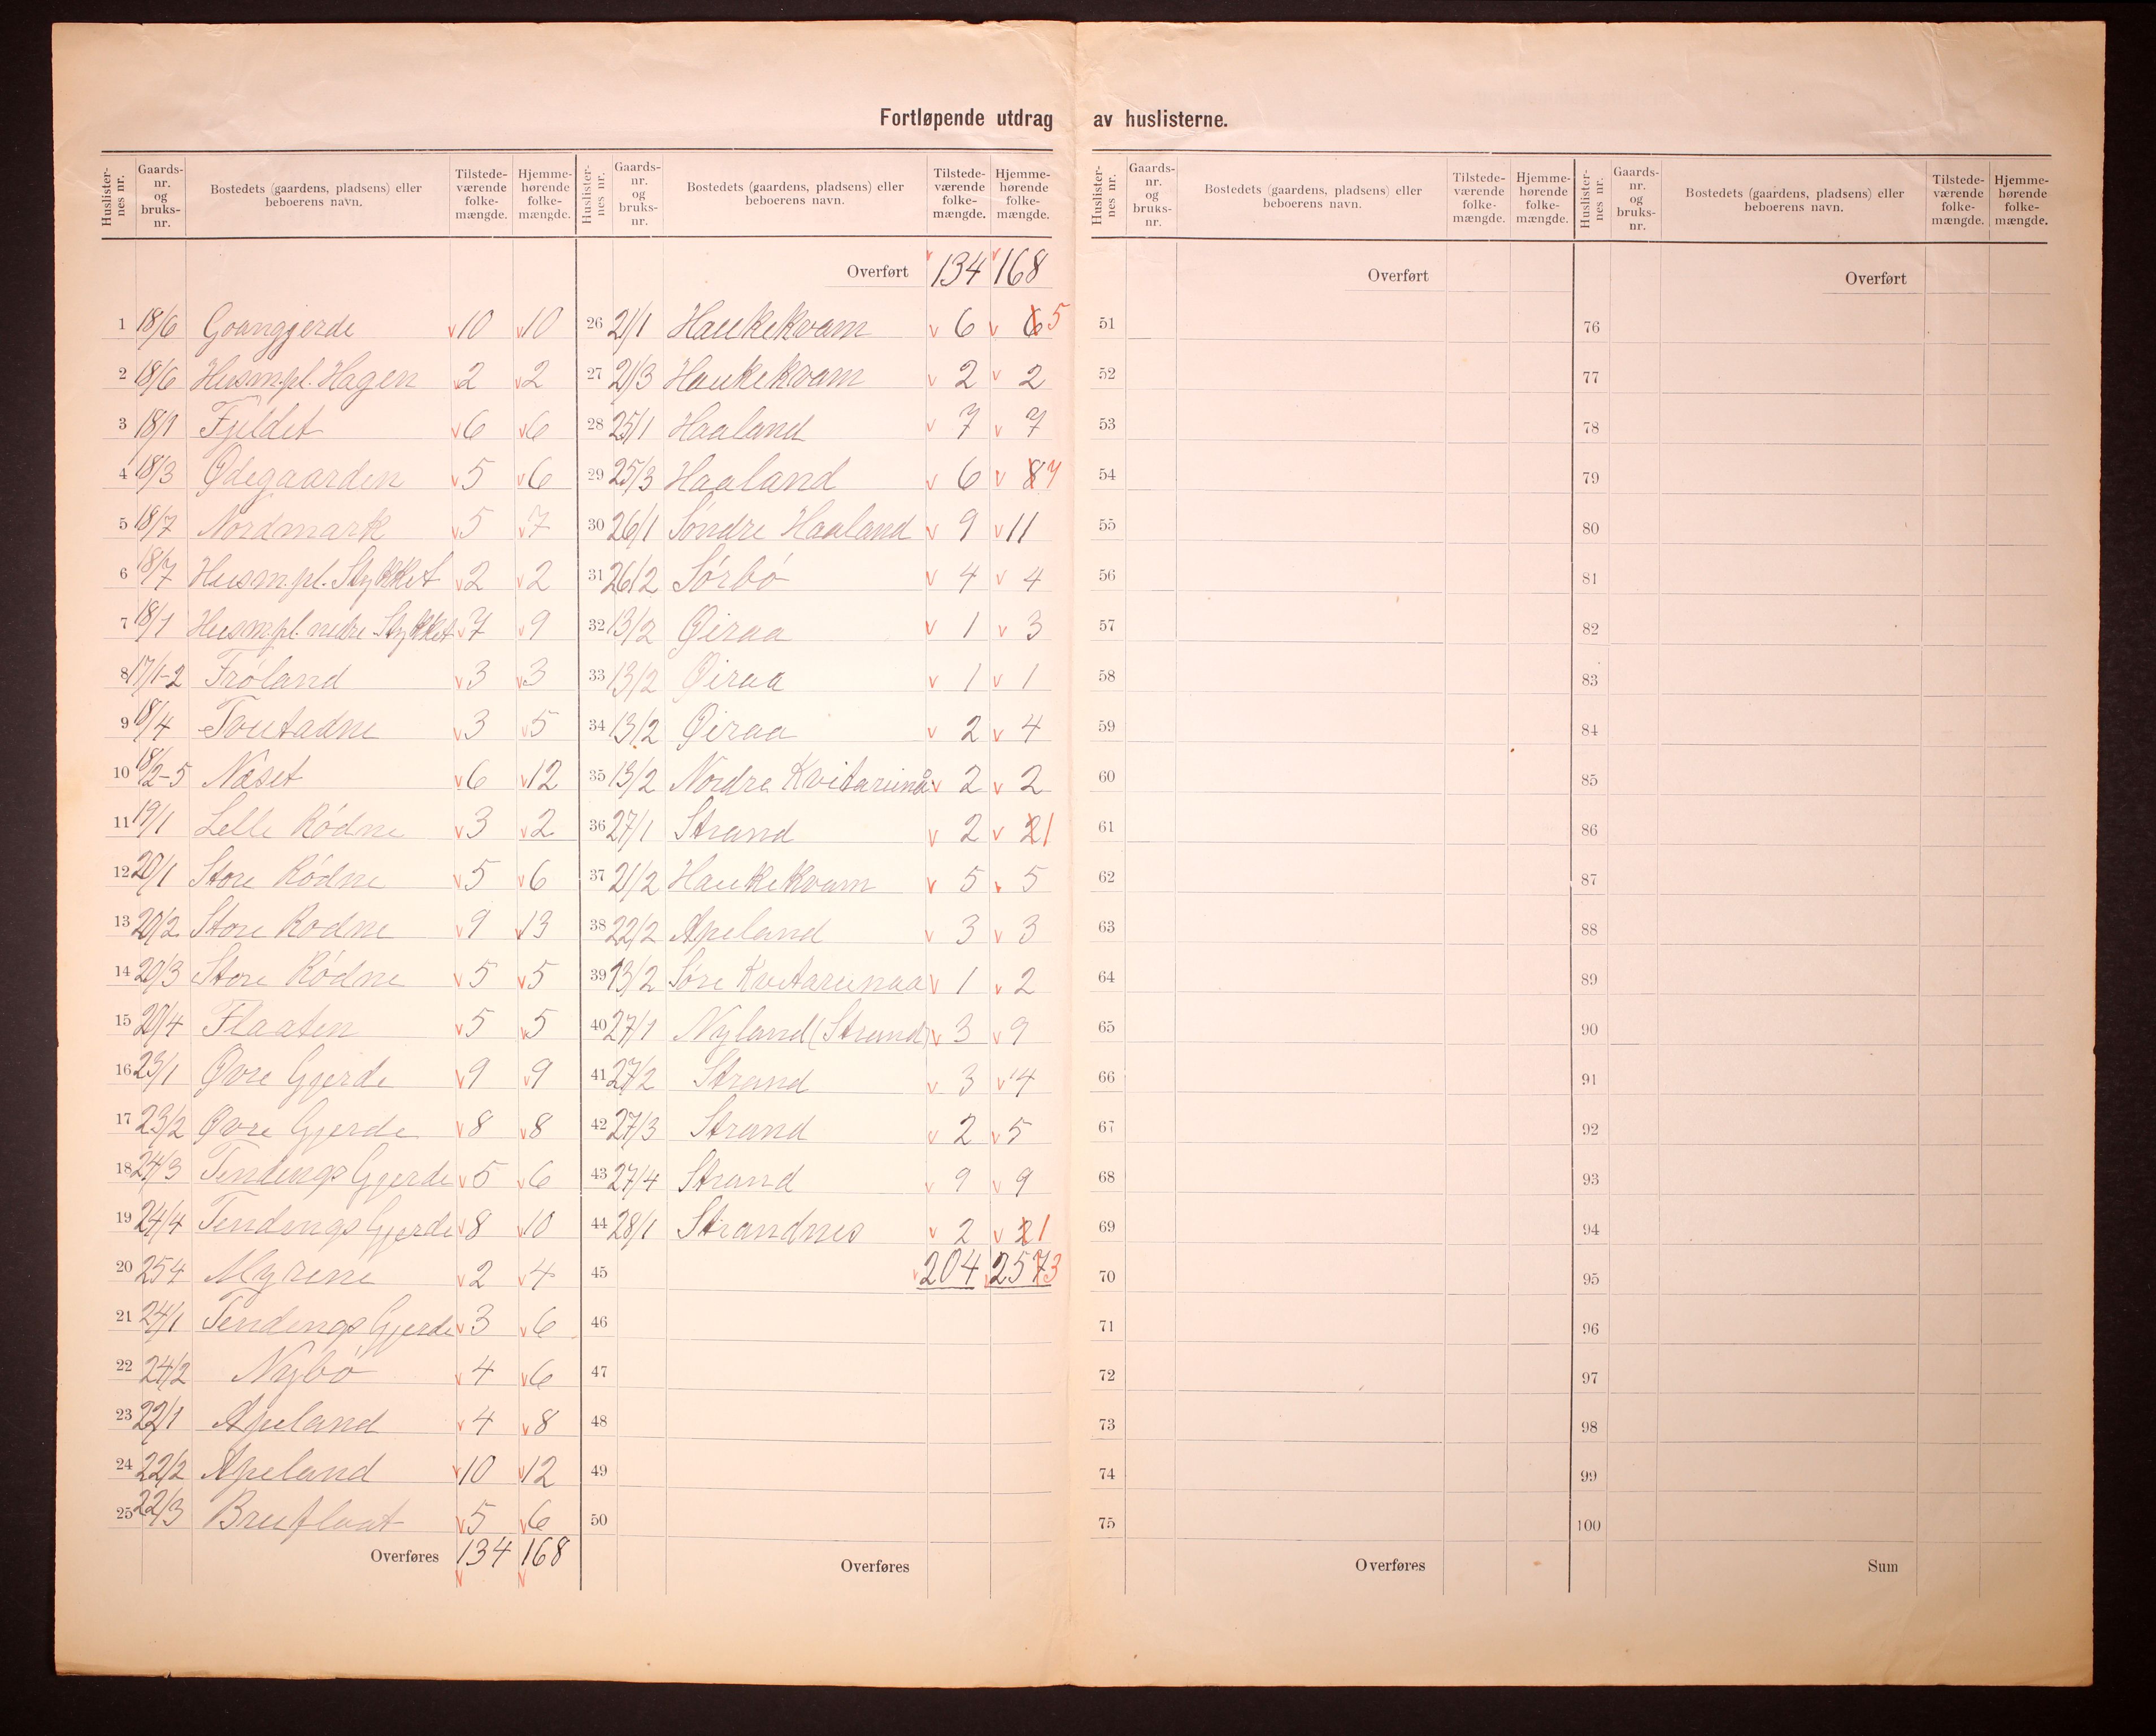 Fortløpende utdrag av huslisterne.
Huslister-nes nr. | Gaards-nr. og bruks-nr. | Bostedets (gaardens, pladsens) eller beboerens navn. | Tilstede-værende folke-mængde. | Hjemme-hørende folke-mængde.
1 18/6 Goanggjerde 10 10
2 18/6 Husm.pl. Hagen 2 2
3 18/1 Fjeldet 6 6
4 18/3 Ødegaarden 5 6
5 18/7 Nordmark 5 7
6 18/7 Husm.pl. Stykket 2 2
7 18/1 Husm.pl. nedre Stykket 7 9
8 17/1-2 Frøland 3 3
9 18/4 Toutadne 3 5
10 18/2-5 Næset 6 12
11 19/1 Lelle Rødne 3 2
12 20/1 Store Rødne 5 6
13 20/2 Store Rødne 9 13
14 20/3 Store Rødne 5 5
15 20/4 Flaaten 5 5
16 23/1 Øvre Gjerde 9 9
17 23/2 Øvre Gjerde 8 8
18 24/3 Tendings Gjerde 5 6
19 24/4 Tendings Gjerde 8 10
20 254 Myrene 2 4
21 24/1 Tendings Gjerde 3 6
22 24/2 Nybø 4 6
23 22/1 Apeland 4 8
24 22/2 Apeland 10 12
25 22/3 Bruflaat 5 6
Overføres 134 168
Huslister-nes nr. | Gaards-nr. og bruks-nr. | Bostedets (gaardens, pladsens) eller beboerens navn. | Tilstede-værende folke-mængde. | Hjemme-hørende folke-mængde.
Overført 134 168
26 21/1 Haukekvam 6 6 5
27 21/3 Haukekvam 2 2
28 25/1 Haaland 7 7
29 25/3 Haaland 6 8 7
30 26/1 Søndre Haaland 9 11
31 26/2 Sørbø 4 4
32 13/2 Øiraa 1 3
33 13/2 Øiraa 1 1
34 13/2 Øiraa 2 4
35 13/2 Nordre Kvitaruinå 2 2
36 27/1 Strand 2 2 1
37 21/2 Haukekvam 5 5
38 22/2 Apeland 3 3
39 13/2 Søre Kvitaruinaa 1 2
40 27/1 Nyland (Strand) 3 9
41 27/2 Strand 3 4
42 27/3 Strand 2 5
43 27/4 Strand 9 9
44 28/1 Strandnes 2 2 1
45 204 257 3
46
47
48
49
50
Overføres
Huslister-nes nr. | Gaards-nr. og bruks-nr. | Bostedets (gaardens, pladsens) eller beboerens navn. | Tilstede-værende folke-mængde. | Hjemme-hørende folke-mængde.
Overført
51
52
53
54
55
56
57
58
59
60
61
62
63
64
65
66
67
68
69
70
71
72
73
74
75
Overføres
Huslister-nes nr. | Gaards-nr. og bruks-nr. | Bostedets (gaardens, pladsens) eller beboerens navn. | Tilstede-værende folke-mængde. | Hjemme-hørende folke-mængde.
Overført
76
77
78
79
80
81
82
83
84
85
86
87
88
89
90
91
92
93
94
95
96
97
98
99
100
Sum